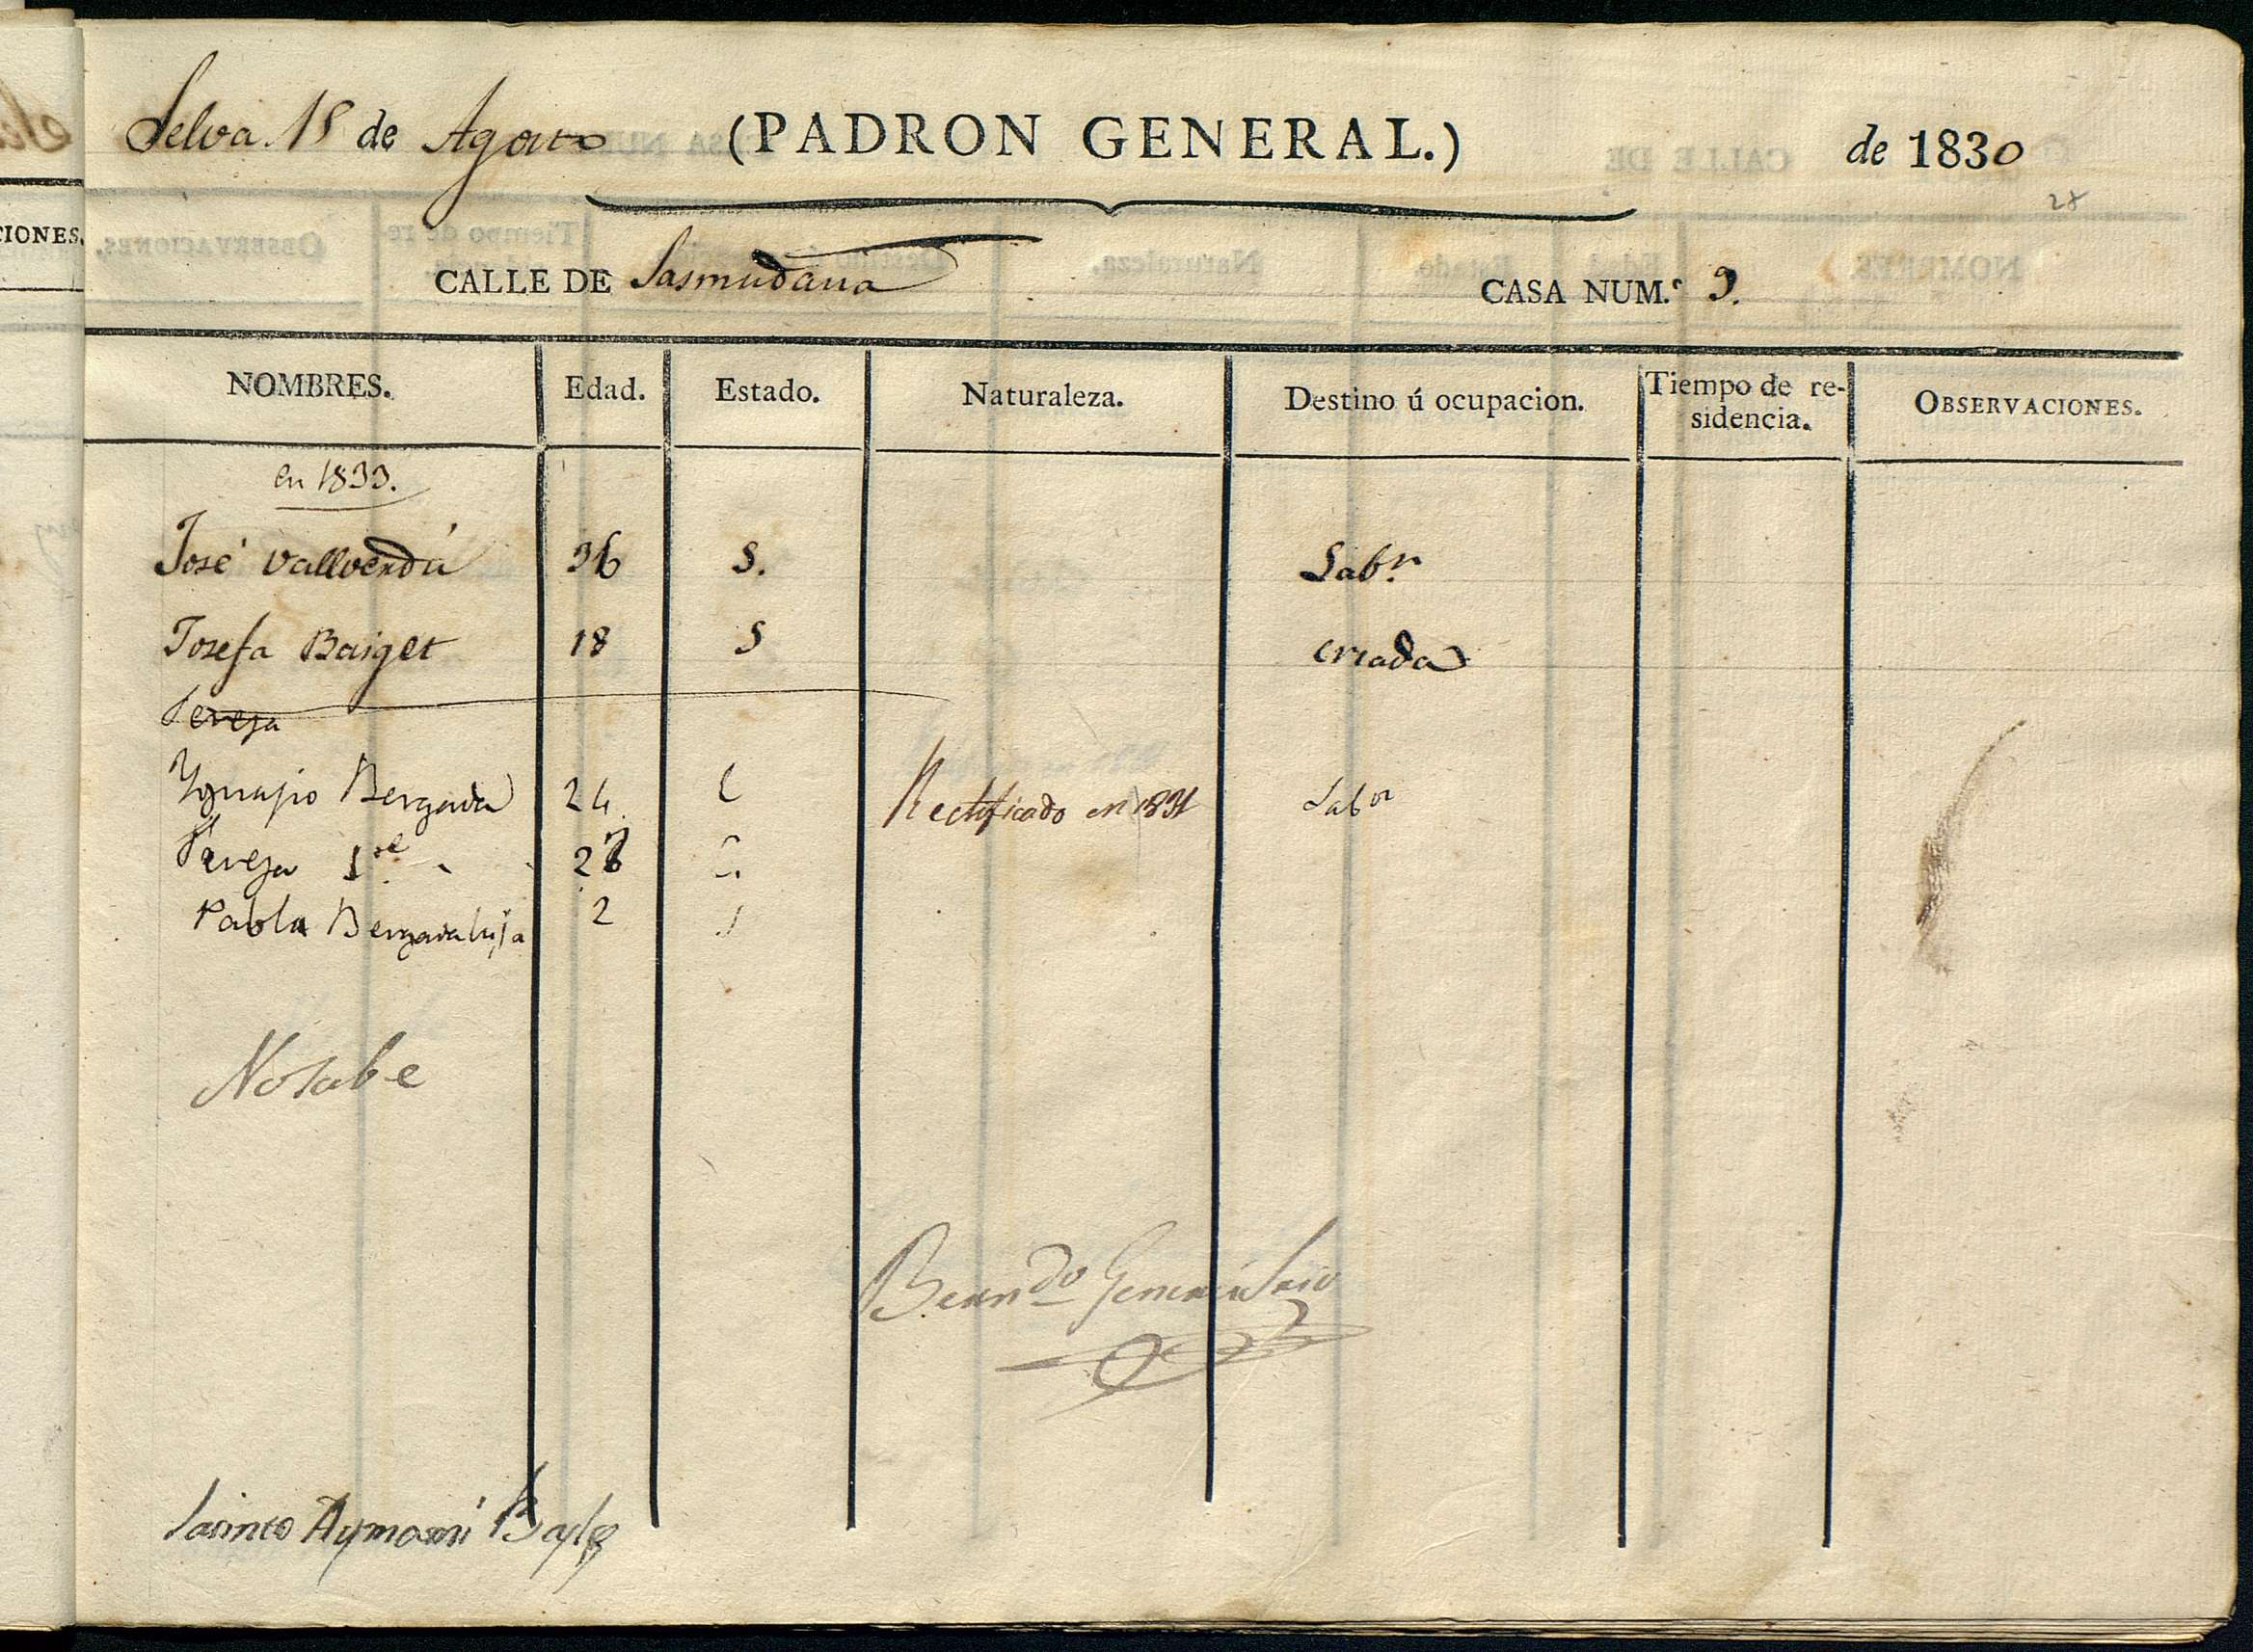 Selva 15 de Agosto (PADRON GENERAL.) de 1830
28
CALLE DE Sasmudana CASA NUM.º 9.
NOMBRES. Edad. Estado. Naturaleza. Destino ú ocupacion. Tiempo de residencia. OBSERVACIONES.
en 1833.
José Vallverdú 36 S. Lab.r
Josefa Baiget 18 S criada
Tereza
Ygnasio Bergada 24 C Rectificado en 1831 Labor
Tereza 27 C
Pabla Bergada hija 2 S
No sabe
Bern.do
Jacinto Aymamí Bayle
CIONES.